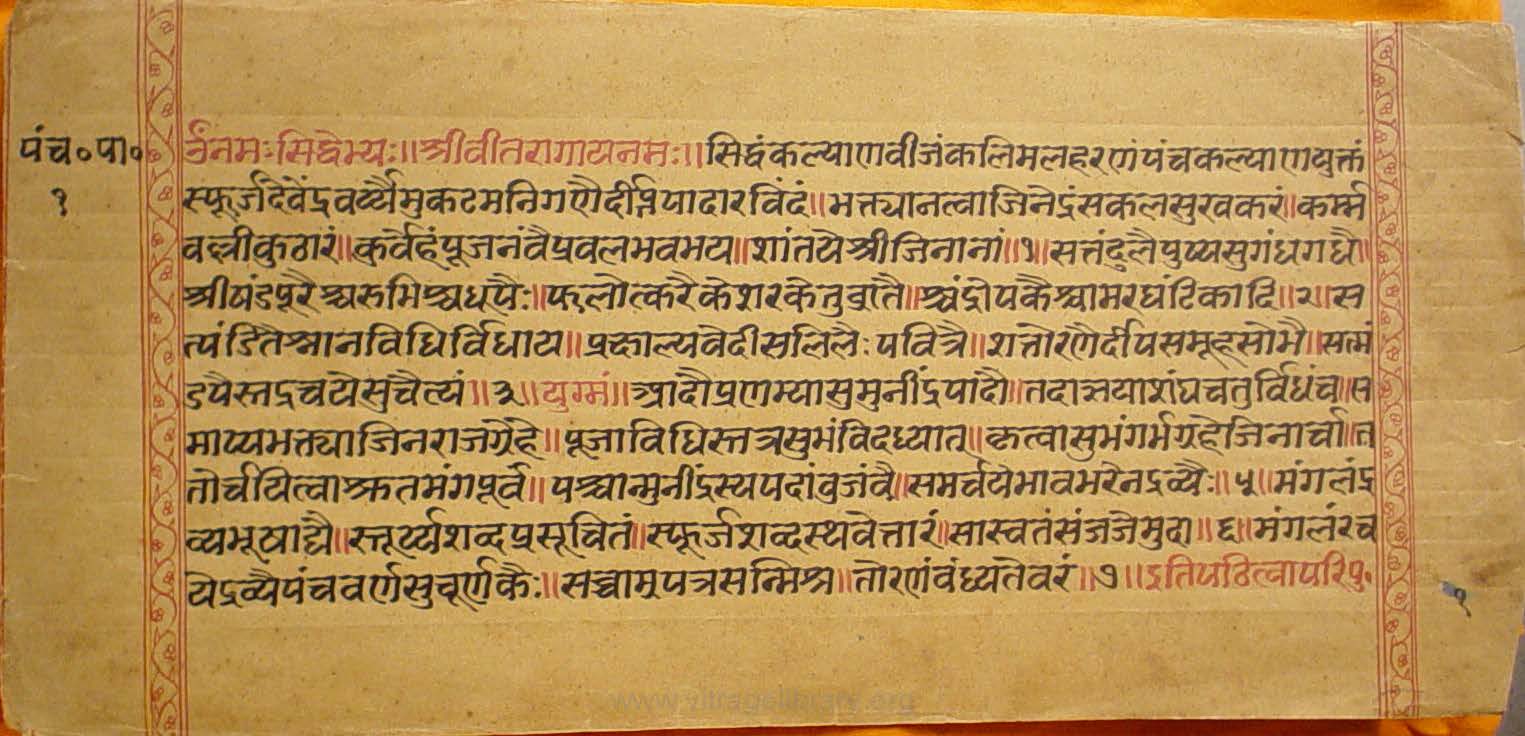 पंच॰पा॰
१
ॐनमःसिद्धेभ्यः॥श्रीवीतरागायनमः॥सिद्धंकल्याणवीजंकलिमलहरणंपंचकल्याणयुक्तं
स्फूर्जद्देवेंद्रवर्य्यैमुकटमनिगणैर्दीप्तिपादारविंदं॥भक्त्यानत्वाजिनेद्रंसकलसुखकरं॥कर्म्म
वल्लीकुठारं॥कुर्वेहंपूजनंवैप्रवलभवभय॥शांतयेश्रीजिनानां॥१॥सत्तंदुलैपुष्पसुगंधगधै॥
श्रीषंडपूरैश्चरुभिश्चधूपैः॥फलोत्करैकेशरकेतुव्रातै॥श्चंद्रोपकैश्चामरघंटिकादि॥२॥स
त्पंडितैश्नानविधिर्विधाय॥प्रक्षाल्यवेदीसलिलैःपवित्रै॥शत्तोरणैर्दीपसमूहसोभै॥सत्मं
डपैस्तद्रचयेसुचैत्यं॥३॥युग्मं॥आदौप्रणम्यासुमुनींद्रपादौ॥तदाज्ञयाशंघचतुर्विधंच॥स
माप्यभक्त्याजिनराजग्रेहे॥पूजाविधिस्तत्रसुभंविदध्यात्॥कृत्वासुभंगर्भग्रहेजिनार्चा॥त
तोर्चयित्वाश्रुतमंगपूर्वं॥पश्चान्मुनींद्रस्यपदांवुजंवै॥समर्चयेभावभरेनद्रव्यैः॥५॥मंगलंद्र
व्यभूषाद्यै॥स्तूर्य्यशव्दप्रसूचितं॥स्फूर्जशव्दस्थवेत्तारं॥सास्वतंसंजजेमुदा॥६॥मंगलंरच
येद्रव्यैपंचवर्णसुचूर्णकैः॥सच्चाम्रपत्रसन्मिश्र॥तोरणंवंध्यतेवरं॥७॥इतिपठित्वापरिपु॰
१
www.vitragelibrary.org